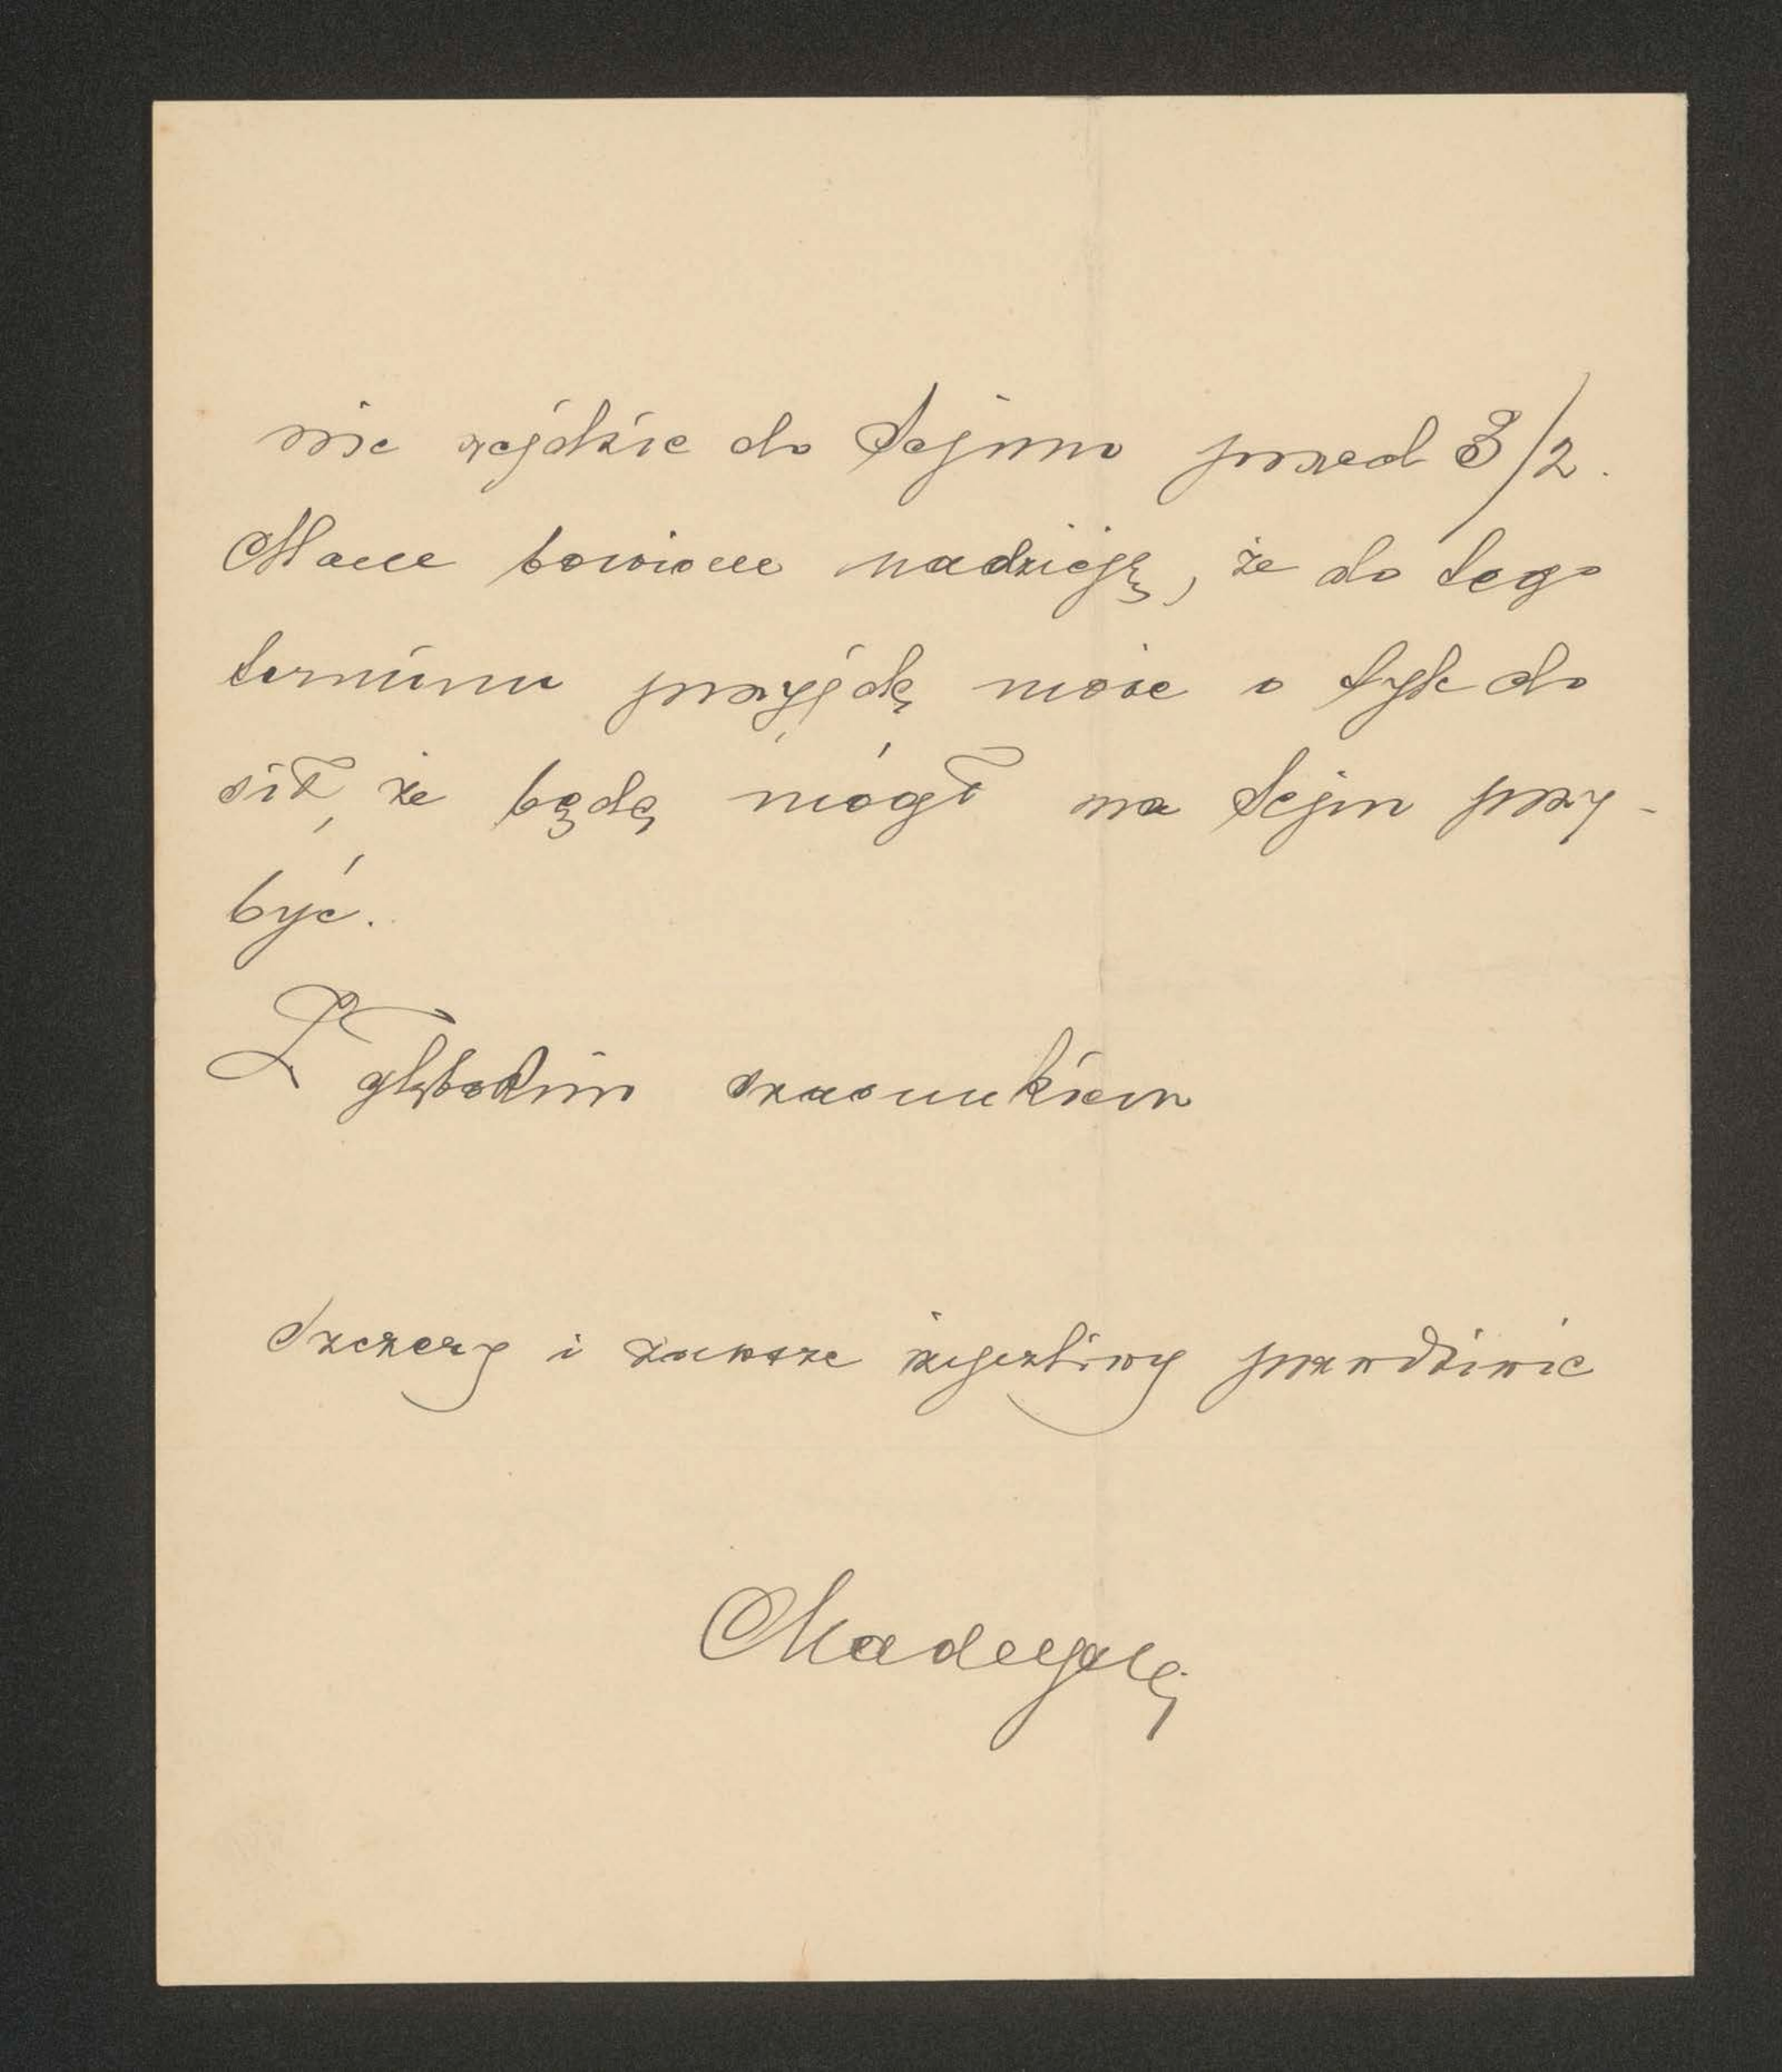 nie zejdzie do Sejmu przed 3/2.
Mam bowiem nadzieję, że do tego
terminu przyjdę może o tyle do
sił, że będę mógł na Sejm przy-
być.
Z głębokim szacunkiem
Szczery i zawsze życzliwy prawdziwie